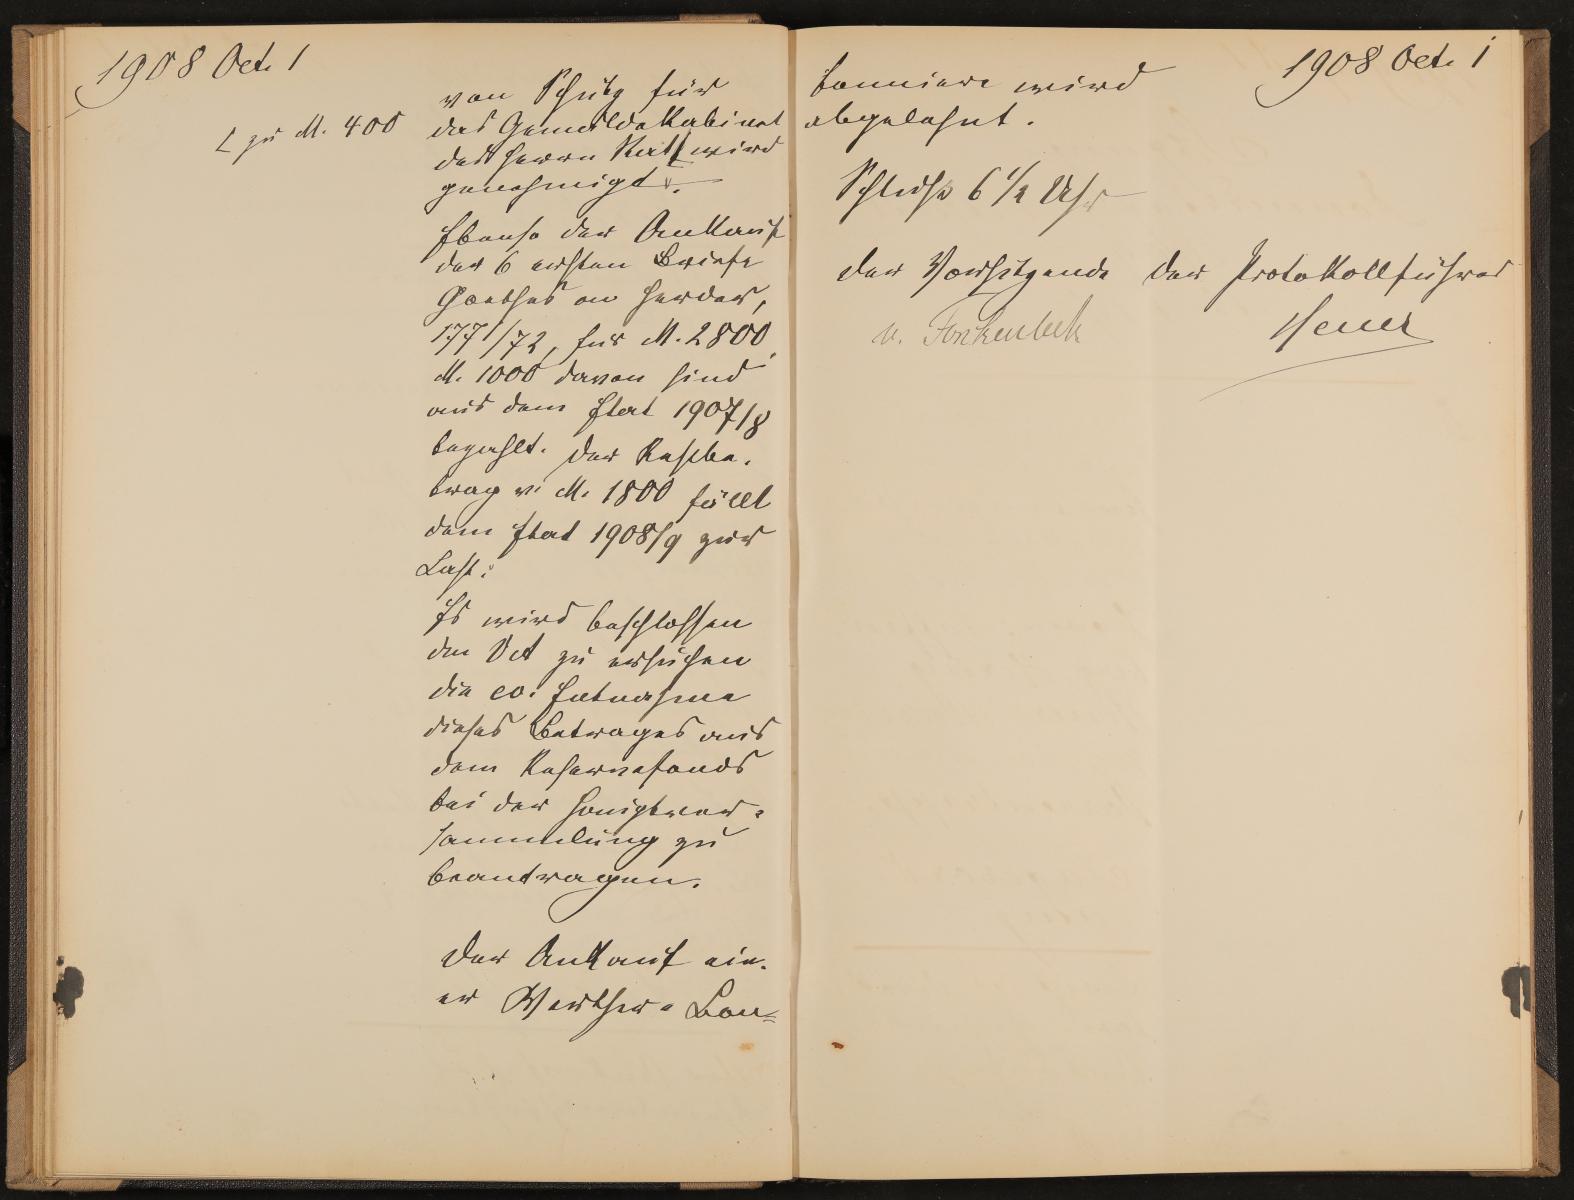 1908 Oct. 1
von Schütz für
⌈ zu M. 400
das Gemäldekabinet
des Herrn Rat ⌈ wird
genehmigt.
Ebenso der Ankauf
der 6 ersten Briefe
Goethes an Herder,
1771/72, für M. 2800.
M. 1000 davon sind
aus dem Etat 1907/8
bezahlt. Der Restbe-
trag v. M. 1800 fällt
dem Etat 1908/9 zur
Last.
Es wird beschlossen
den VA zu ersuchen
die ev. Entnahme
dieses Betrages aus
dem Reservefonds
bei der Hauptver-
sammlung zu
beantragen.
Der Ankauf ein-
er Werther-Bon-
1908 Oct. 1
bonniere wird
abgelehnt.
Schluß 6 1/2 Uhr
Der Vorsitzende Der Protokollführer
v. Forkenbeck Heuer